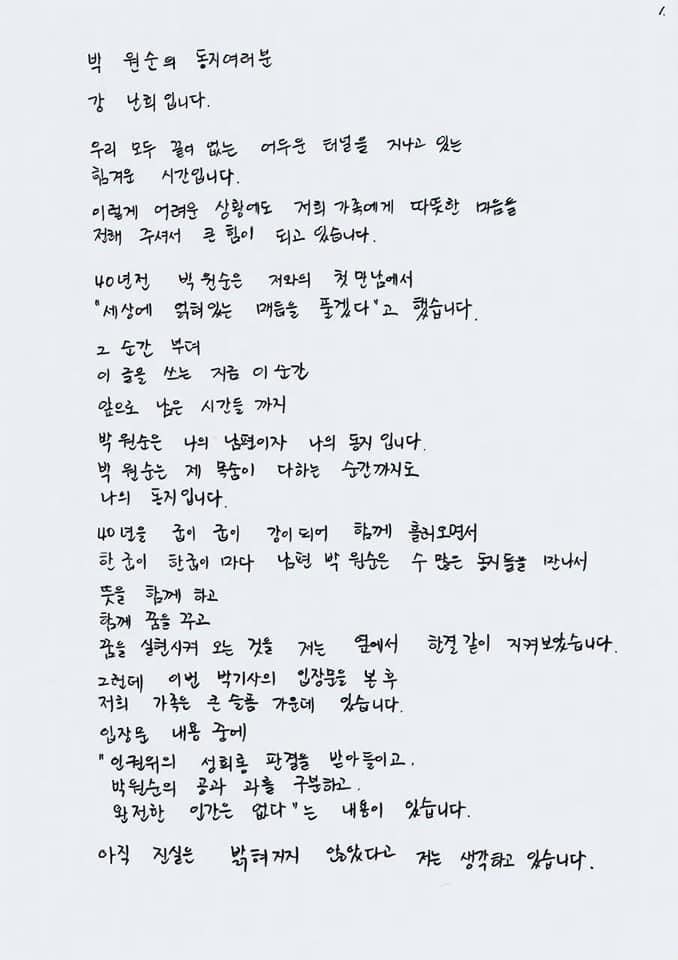 1.
박 원순의 동지여러분
강 난희입니다.
우리 모두 끝이 없는 어두운 터널을 지나고 있는
힘겨운 시간입니다.
이렇게 어려운 상황에도 저희 가족에게 따뜻한 마음을
전해 주셔서 큰 힘이 되고 있습니다.
40년전 박 원순은 저와의 첫 만남에서
"세상에 얽혀있는 매듭을 풀겠다"고 했습니다.
그 순간 부터
이 글을 쓰는 지금 이 순간
앞으로 남은 시간들 까지
박 원순은 나의 남편이자 나의 동지 입니다.
박 원순은 제 목숨이 다하는 순간까지도
나의 동지입니다.
40년을 굽이 굽이 강이 되어 함께 흘러오면서
한 굽이 한굽이 마다 남편 박 원순은 수 많은 동지들을 만나서
뜻을 함께 하고
함께 꿈을 꾸고
꿈을 실현시켜 오는 것을 저는 옆에서 한결 같이 지켜보았습니다.
그런데 이번 박기사의 입장문을 본 후
저희 가족은 큰 슬픔 가운데 있습니다.
입장문 내용 중에
"인권위의 성희롱 판결을 받아들이고.
박원순의 공과 과를 구분하고.
완전한 인간은 없다"는 내용이 있습니다.
아직 진실은 밝혀지지 않았다고 저는 생각하고 있습니다.